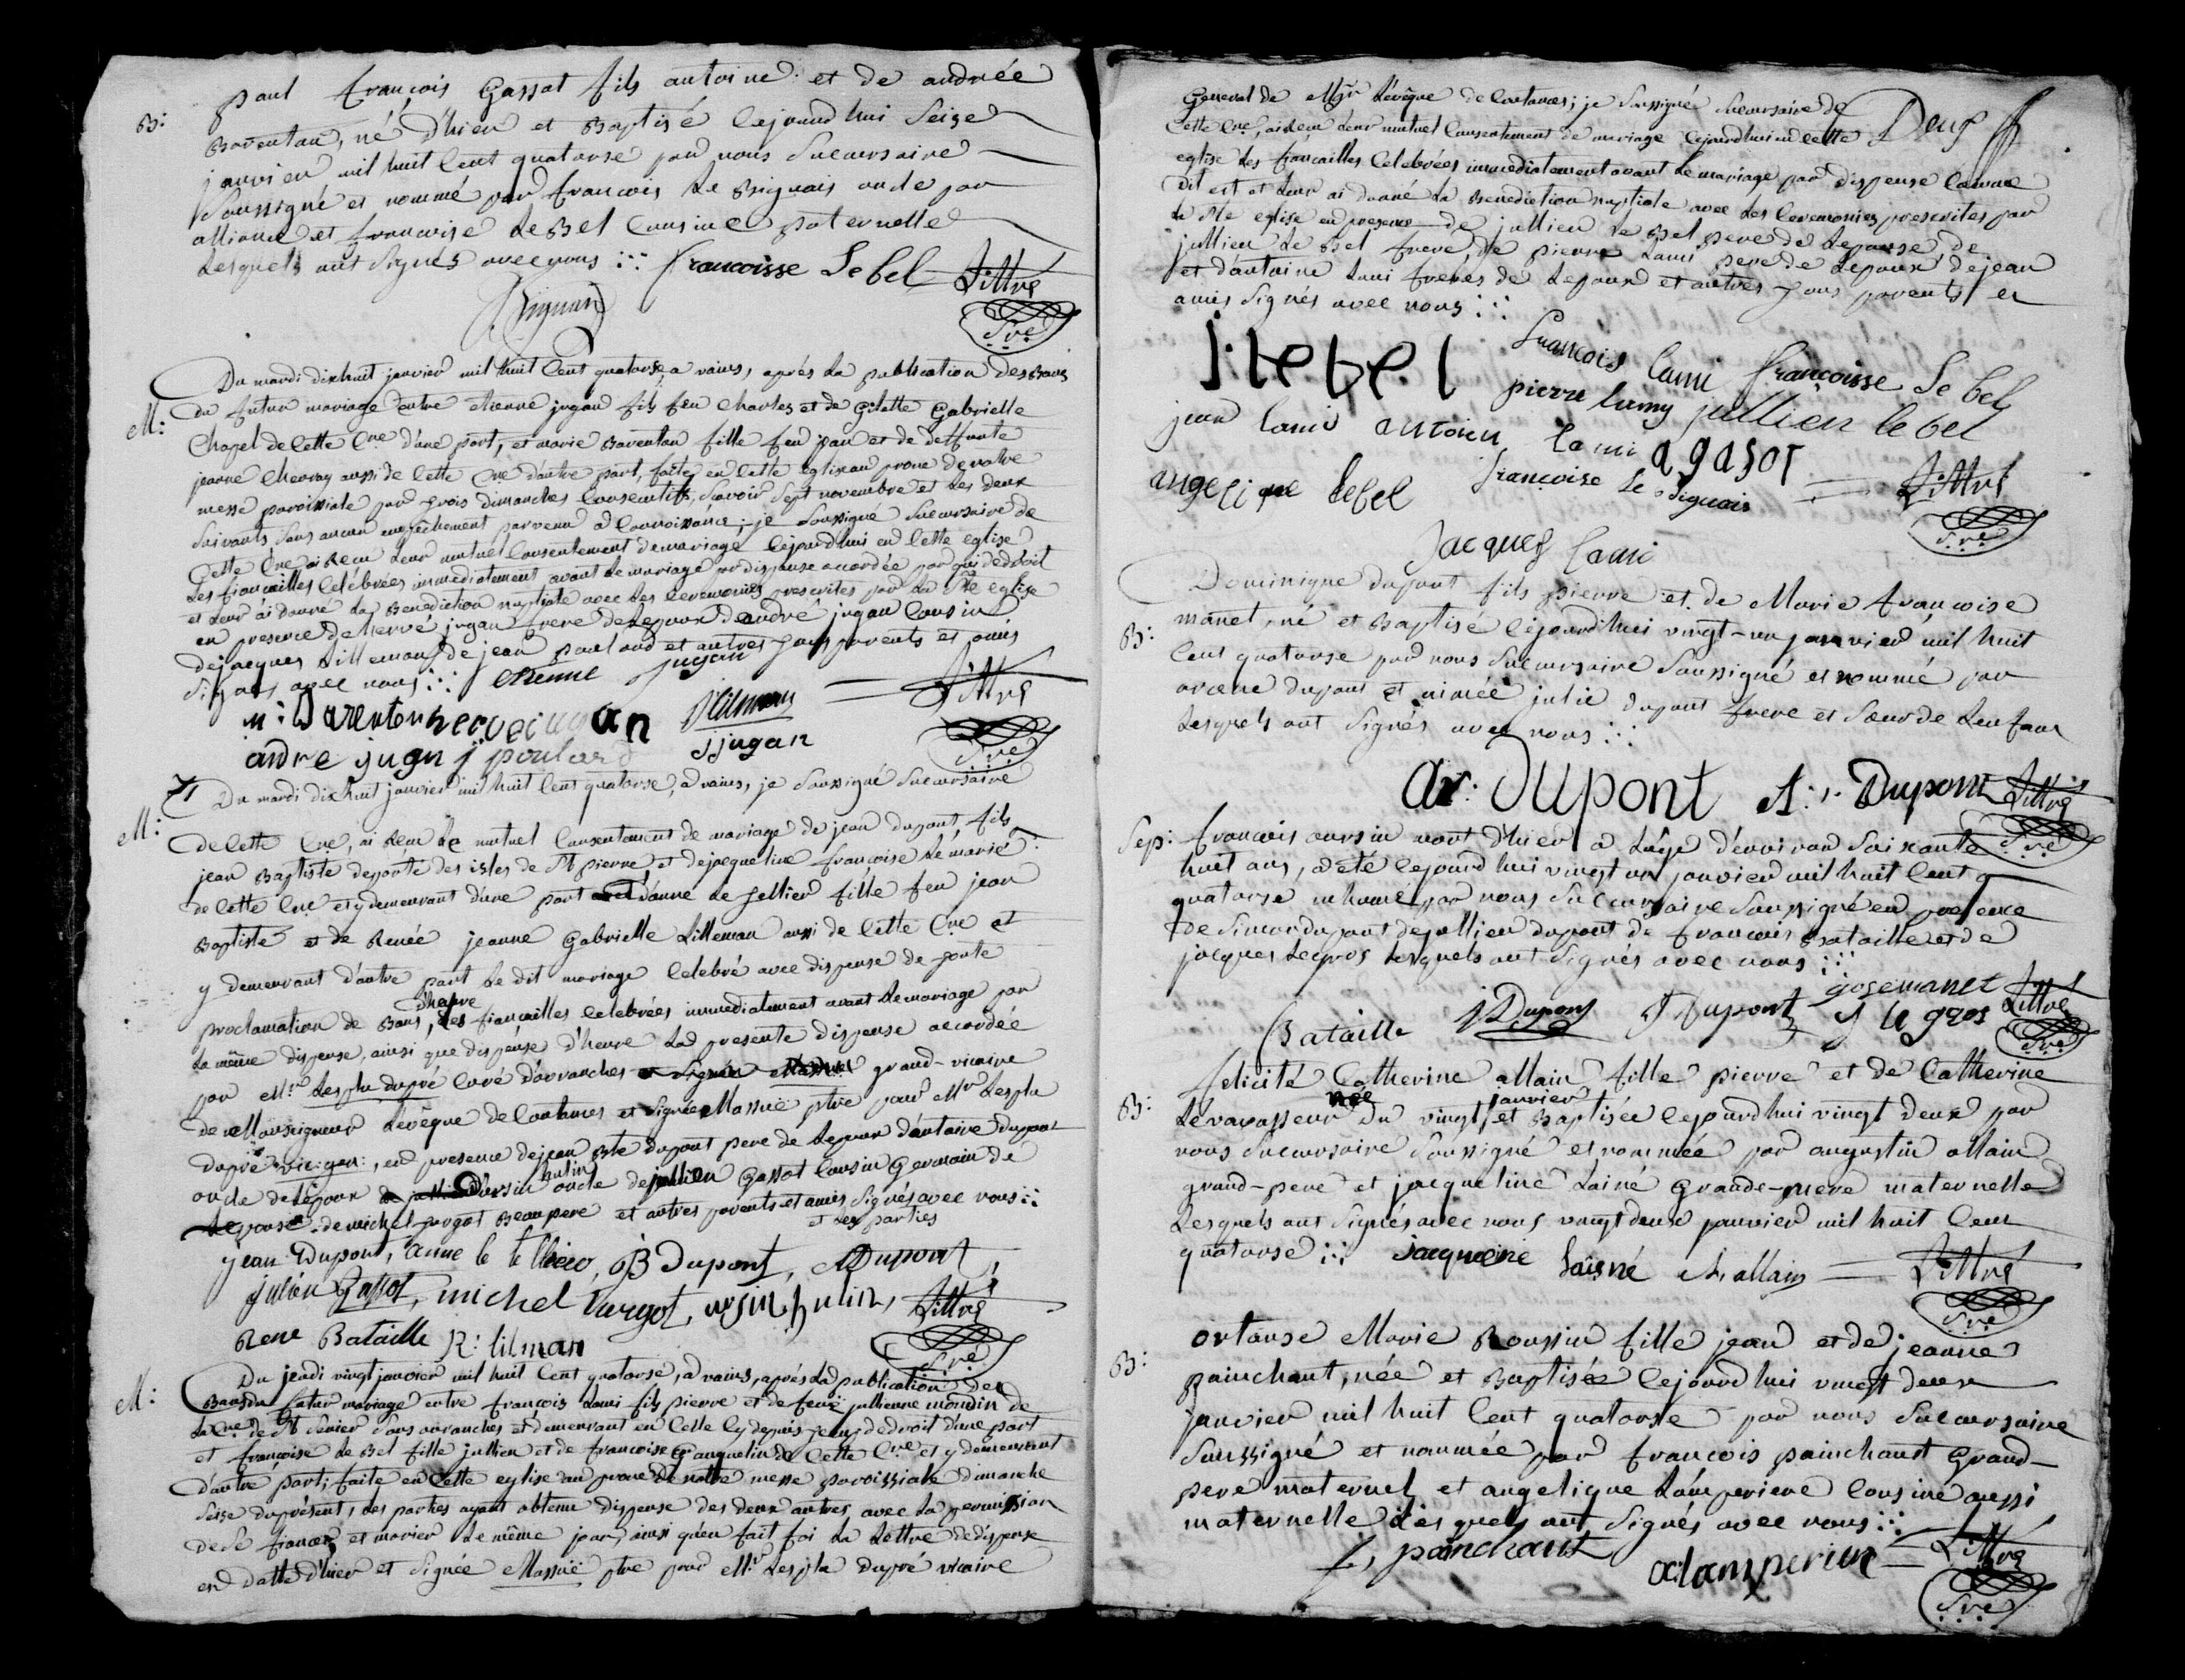 B:
paul françois Gassot fils antoine et de andrée
Barentan, né d'hier et Baptisé cejourd'hui Seise
janvier mil huit Cent quatorse par nous Sucursaire
Soussigné et nommé par françois Le Biguais oncle par
alliance et francoise Le Bel Cousine paternelle
Lesquels ont Signés avec nous francoisse Le bel Littré
Sre
M:
Du mardi dixhuit janvier mil huit Cent quatorse, a vains, aprés La publication des Bans
du futur mariage entre etienne jugan fils feu Charles et de Gilette Gabrielle
Chapel de cette Cne d'une part, et marie Barentan fille feu jean et de deffunte
jeanne Chevray aussi de cette Cne d'autre part, faite en cette eglise au prone de notre
messe paroissiale par trois dimanches Consecutifs, Savoir Sept novembre et Les deux
Suivants Sans aucun empêchement parvenu a Connoissance; je Soussigné Sucursaire de
Cette Cne ai Recu Leur mutuel Consentement de mariage cejourd'hui en Cette eglise
Les fiancailles Celébrées immediatement avant Le mariage par dispense accordée par qui de droit
et Leur ai donné La Benediction nuptiale avec Les Ceremonies prescrites par La Ste eglise
en presence de hervé jugan frere de Lepoux d'andré jugan Cousin
de jacques Lilleman, de jean poulard et autres tous parents et amis
Signés avec nous etienne jugan
m: Barenton herve jugan J lilman Littré
andre jugan j poulard j jugan Sre
M:
Du mardi dixhuit janvier mil huit Cent quatorse, a vains, je Soussigné Sucursaire
de Cette Cne, ai Recu Le mutuel Consentement de mariage de jean dupont, fils
jean Baptiste deporté des isles de St pierre, et de jacqueline francoise Le marié
de Cette Cne et y demeurant d'une part et d'anne Le Tellier fille feu jean
Baptiste et de Renée jeanne Gabrielle Lilleman aussi de Cette Cne et
y demeurant d'autre part Le dit mariage Celebré avec dispense de toute
proclamation de Bans, Les fiancailles Celebrées immediatement avant Le mariage par
La même dispense, ainsi que dispense d'heure La presente dispense accordée
par Mr Lesplu dupré Curé d'avranches grand-vicaire
de Monseigneur L'évêque de Coutances et Signée Massue ptre pour Mr Lesplu
dupré vic: gen:, en presence de jean Bte dupont pere de Lepoux d'antoine dupont
oncle de Lépoux hulin oncle de jullien Gassot Cousin Germain de
Lepouse de michel turgot Beaupere et autres parents et amis Signés avec nous
et Les parties
jean Dupont, anne le tellier, JB Dupont, A Dupont,
julien Gassot, michel turgot, ursin hulin, Littré
Rene Bataille R: lilman Sre
M:
Du jeudi vingt janvier mil huit Cent quatorse, a vains, aprés La publication des
Bans du futur mariage entre françois Lami fils pierre et de feue jullienne mondin de
La Cne de St Senier Sous avranches et demeurant en Celle cy depuis tems de droit d'une part
et françoise Le Bel fille jullien et de francoise Ganquelin de Cette Cne et y demeurant
d'autre part; faite en Cette eglise au prone de notre messe paroissiale dimanche
Seise du présent, Les parties ayant obtenu dispense des deux autres, avec La permission
de Se fiancer et marier Le même jour, ainsi qu'en fait foi La Lettre de dispense
en datte d'hier et Signée Massuë ptre pour Mr Lesplu dupré vicaire
General de Mgr L'évêque de Coutances; je Soussigné Sucursaire de Deux
Cette Cne, ai Recu Leur mutuel Consentement de mariage cejourd'hui en Cette
eglise Les fiancailles Celebrées immediatement avant Le mariage par dispense Comme
dit est et Leur ai donné La Benediction nuptiale avec Les Ceremonies prescrites par
La Ste eglise en presence de jullien Le Bel pere de Lepouse, de
jullien Le Bel frere, de pierre Lami pere de Lepoux, de jean
et d'antoine Lami freres de Lepoux et autres tous parents et
amis Signés avec nous
J: lebel francois lami françoisse Le bel
pierre lamy jullien le bel
jean lami antoin lami a gasot
angelique lebel françoise Le Biguais Littré
Sre
Jacques lami
B:
Dominique dupont fils pierre et de Marie françoise
manet, né et Baptisé cejourd'hui vingt-un janvier mil huit
Cent quatorse par nous Sucursaire Soussigné et nommé par
arcene dupont et aimée julie dupont frere et Soeur de Lenfant
Lesquels ont Signés avec nous
Ar: Dupont A: j: Dupont Littré
Sre
Sep:
francois oursin mort d'hier a L'âge d'environ Soixante
huit ans, a été cejourd'hui vingt un janvier mil huit Cent
quatorse inhumé par nous Sucursaire Soussigné en presence
de Simon dupont de jullien dupont de francois Bataille et de
jacques Legros Lesquels ont Signés avec nous
gosemanet
Bataille J Dupont S Dupont J le gros Littré
Sre
B:
felicité Catherine allain fille pierre et de Catherine
née janvier
Levavasseur du vingt et Baptisée cejourd'hui vingt deux par
nous Sucursaire Soussigné et nommée par augustin allain
grand-pere et jacqueline Lainé grande-mere maternelle
Lesquels ont Signés avec nous vingt deux janvier mil huit Cent
quatorse jacqueline Laisné A, allain Littré
Sre
B:
ortanse Marie Roussin fille jean et de jeanne
painchaut, née et Baptisée cejourd'hui vingt deux
janvier mil huit Cent quatorse par nous Sucursaire
Soussigné et nommée par françois painchaut Grand-
pere maternel et angelique Lamperiere Cousine aussi
maternelle Lesquels ont Signés avec nous
f, painchaut a: lamperiere Littré
Sre